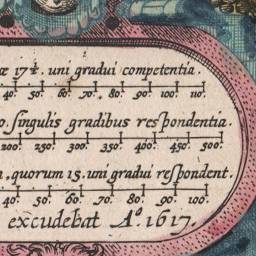 æ 17 1/2. uni gradui competentia.
40. 50. 60. 70. 80. 90. 100. 110.
o. singulis gradibus respondentia.
200. 250. 300. 350. 400. 450. 500.
, quorum 15. uni gradui respondent.
40. 50. 60. 70. 80. 90. 100.
excudebat A.º 1617.